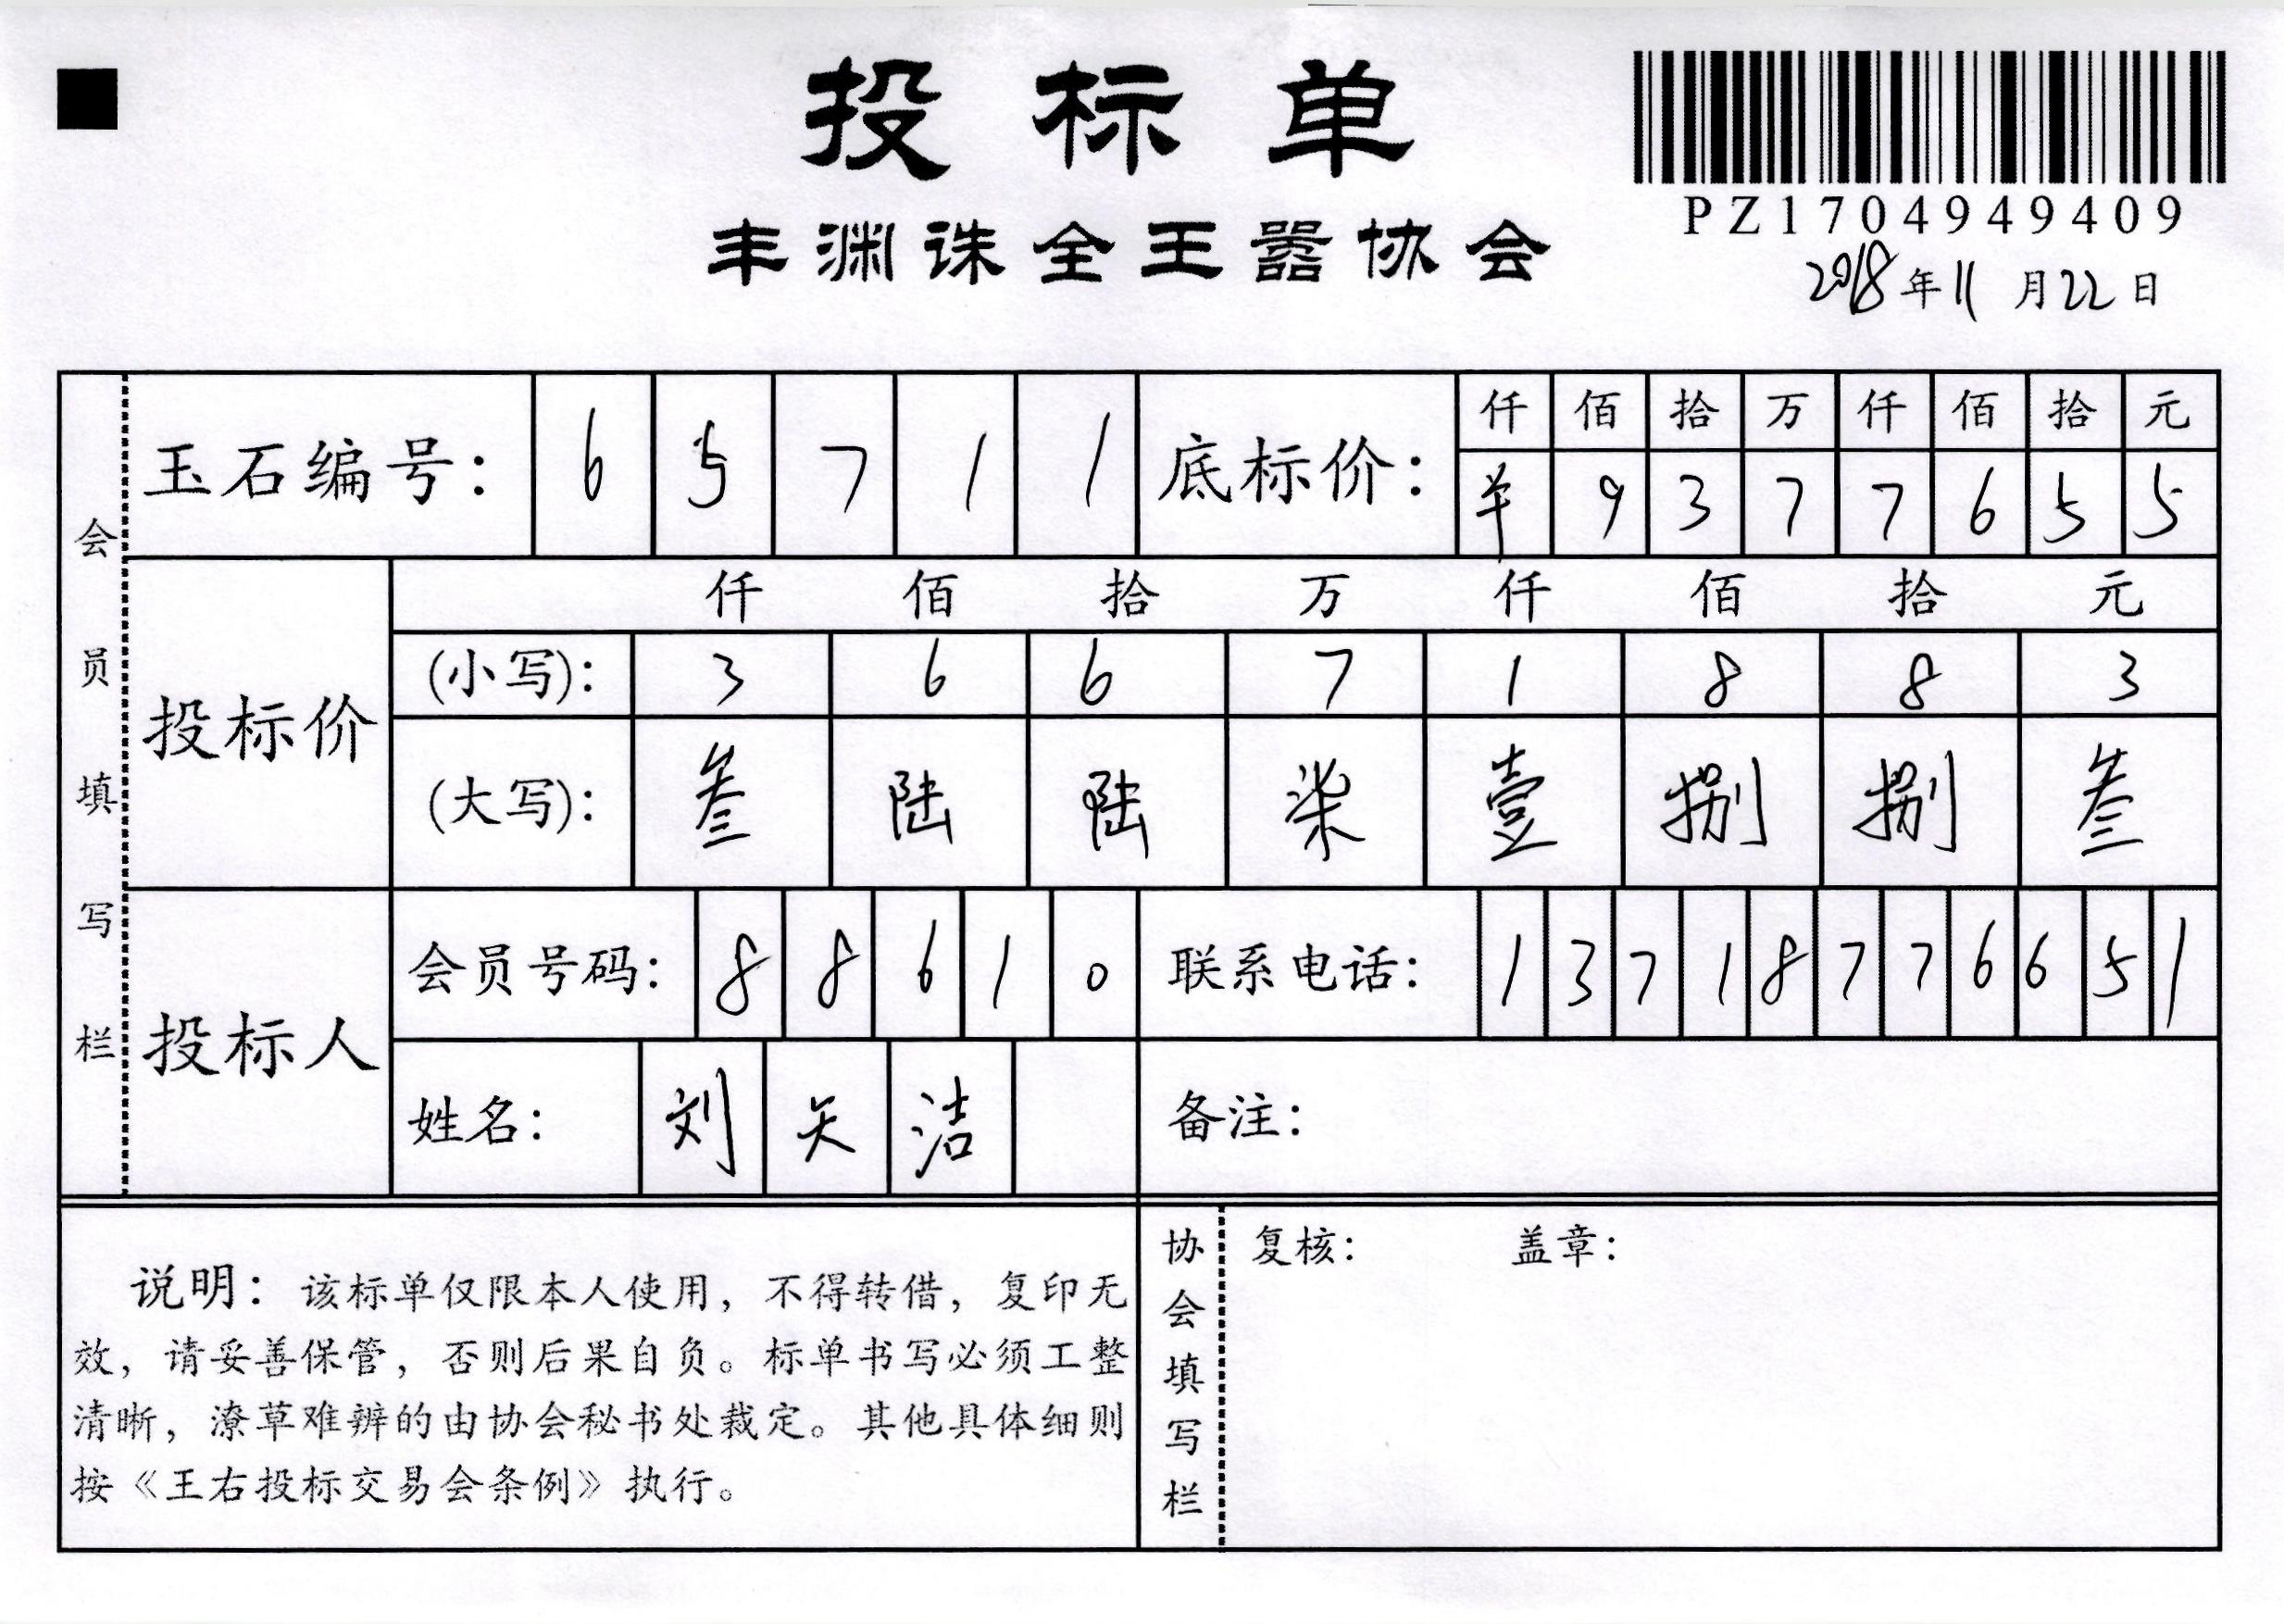 投标单
PZ1704949409
丰渊诛全王嚣协会
2018年11月22日
会员填写栏
玉石编号: 6 5 7 1 1
底标价: 仟 佰 拾 万 仟 佰 拾 元
¥ 9 3 7 7 6 5 5
投标价
仟 佰 拾 万 仟 佰 拾 元
(小写): 3 6 6 7 1 8 8 3
(大写): 叁 陆 陆 柒 壹 捌 捌 叁
投标人
会员号码: 8 8 6 1 0
联系电话: 1 3 7 1 8 7 7 6 6 5 1
姓名: 刘 天 洁
备注:
说明: 该标单仅限本人使用, 不得转借, 复印无
效, 请妥善保管, 否则后果自负。标单书写必须工整
清晰, 潦草难辨的由协会秘书处裁定。其他具体细则
按《王右投标交易会条例》执行。
协会填写栏
复核: 盖章: